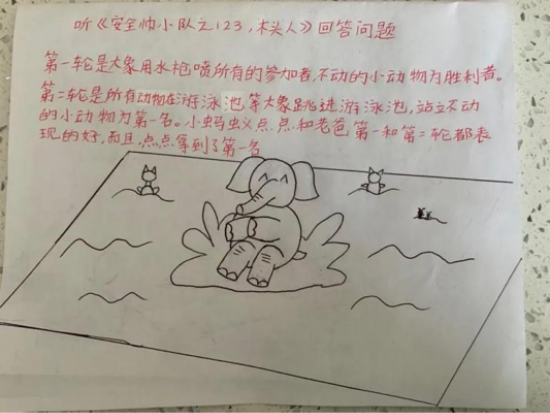 听《安全帅小队之123,木头人》回答问题
第一轮是大象用水枪喷所有的参加者,不动的小动物为胜利者。
第二轮是所有动物在游泳池,等大象跳进游泳池,站立不动
的小动物为第一名。小蚂蚁点点和老爸第一和第二轮都表
现的好,而且,点点拿到了第一名